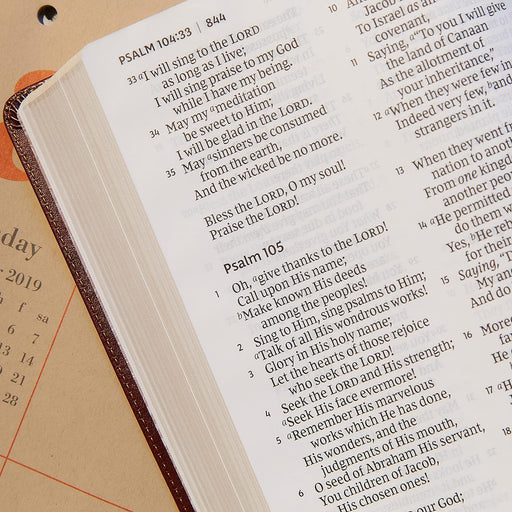 PSALM 104:33 | 844
33 aI will sing to the LORD
as long as I live;
I will sing praise to my God
while I have my being.
34 May my ameditation
be sweet to Him;
I will be glad in the LORD.
35 May asinners be consumed
from the earth,
And the wicked be no more.
Bless the LORD, O my soul!
Praise the LORD!
Psalm 105
1 Oh, agive thanks to the LORD!
Call upon His name;
bMake known His deeds
among the peoples!
2 Sing to Him, sing psalms to Him;
aTalk of all His wondrous works!
3 Glory in His holy name;
Let the hearts of those rejoice
who seek the LORD!
4 Seek the LORD and His strength;
aSeek His face evermore!
5 aRemember His marvelous
works which He has done,
His wonders, and the
judgments of His mouth,
6 O seed of Abraham His servant,
You children of Jacob,
His chosen ones!
our God;
10 And
Jacob
To Israel as an
covenant,
11 Saying, a"To you I will give
the land of Canaan
As the allotment of
your inheritance,"
12 aWhen they were few in
Indeed very few, band
strangers in it.
13 When they went f
nation to anot
From one kingd
another peop
14 aHe permitted
do them w
Yes, bHe reb
for their
15 Saying, "D
My an
And do
16 Moreo
fa
He
17 aH
18
day
r 2019
h f sa
6 7
13 14
20 21
28